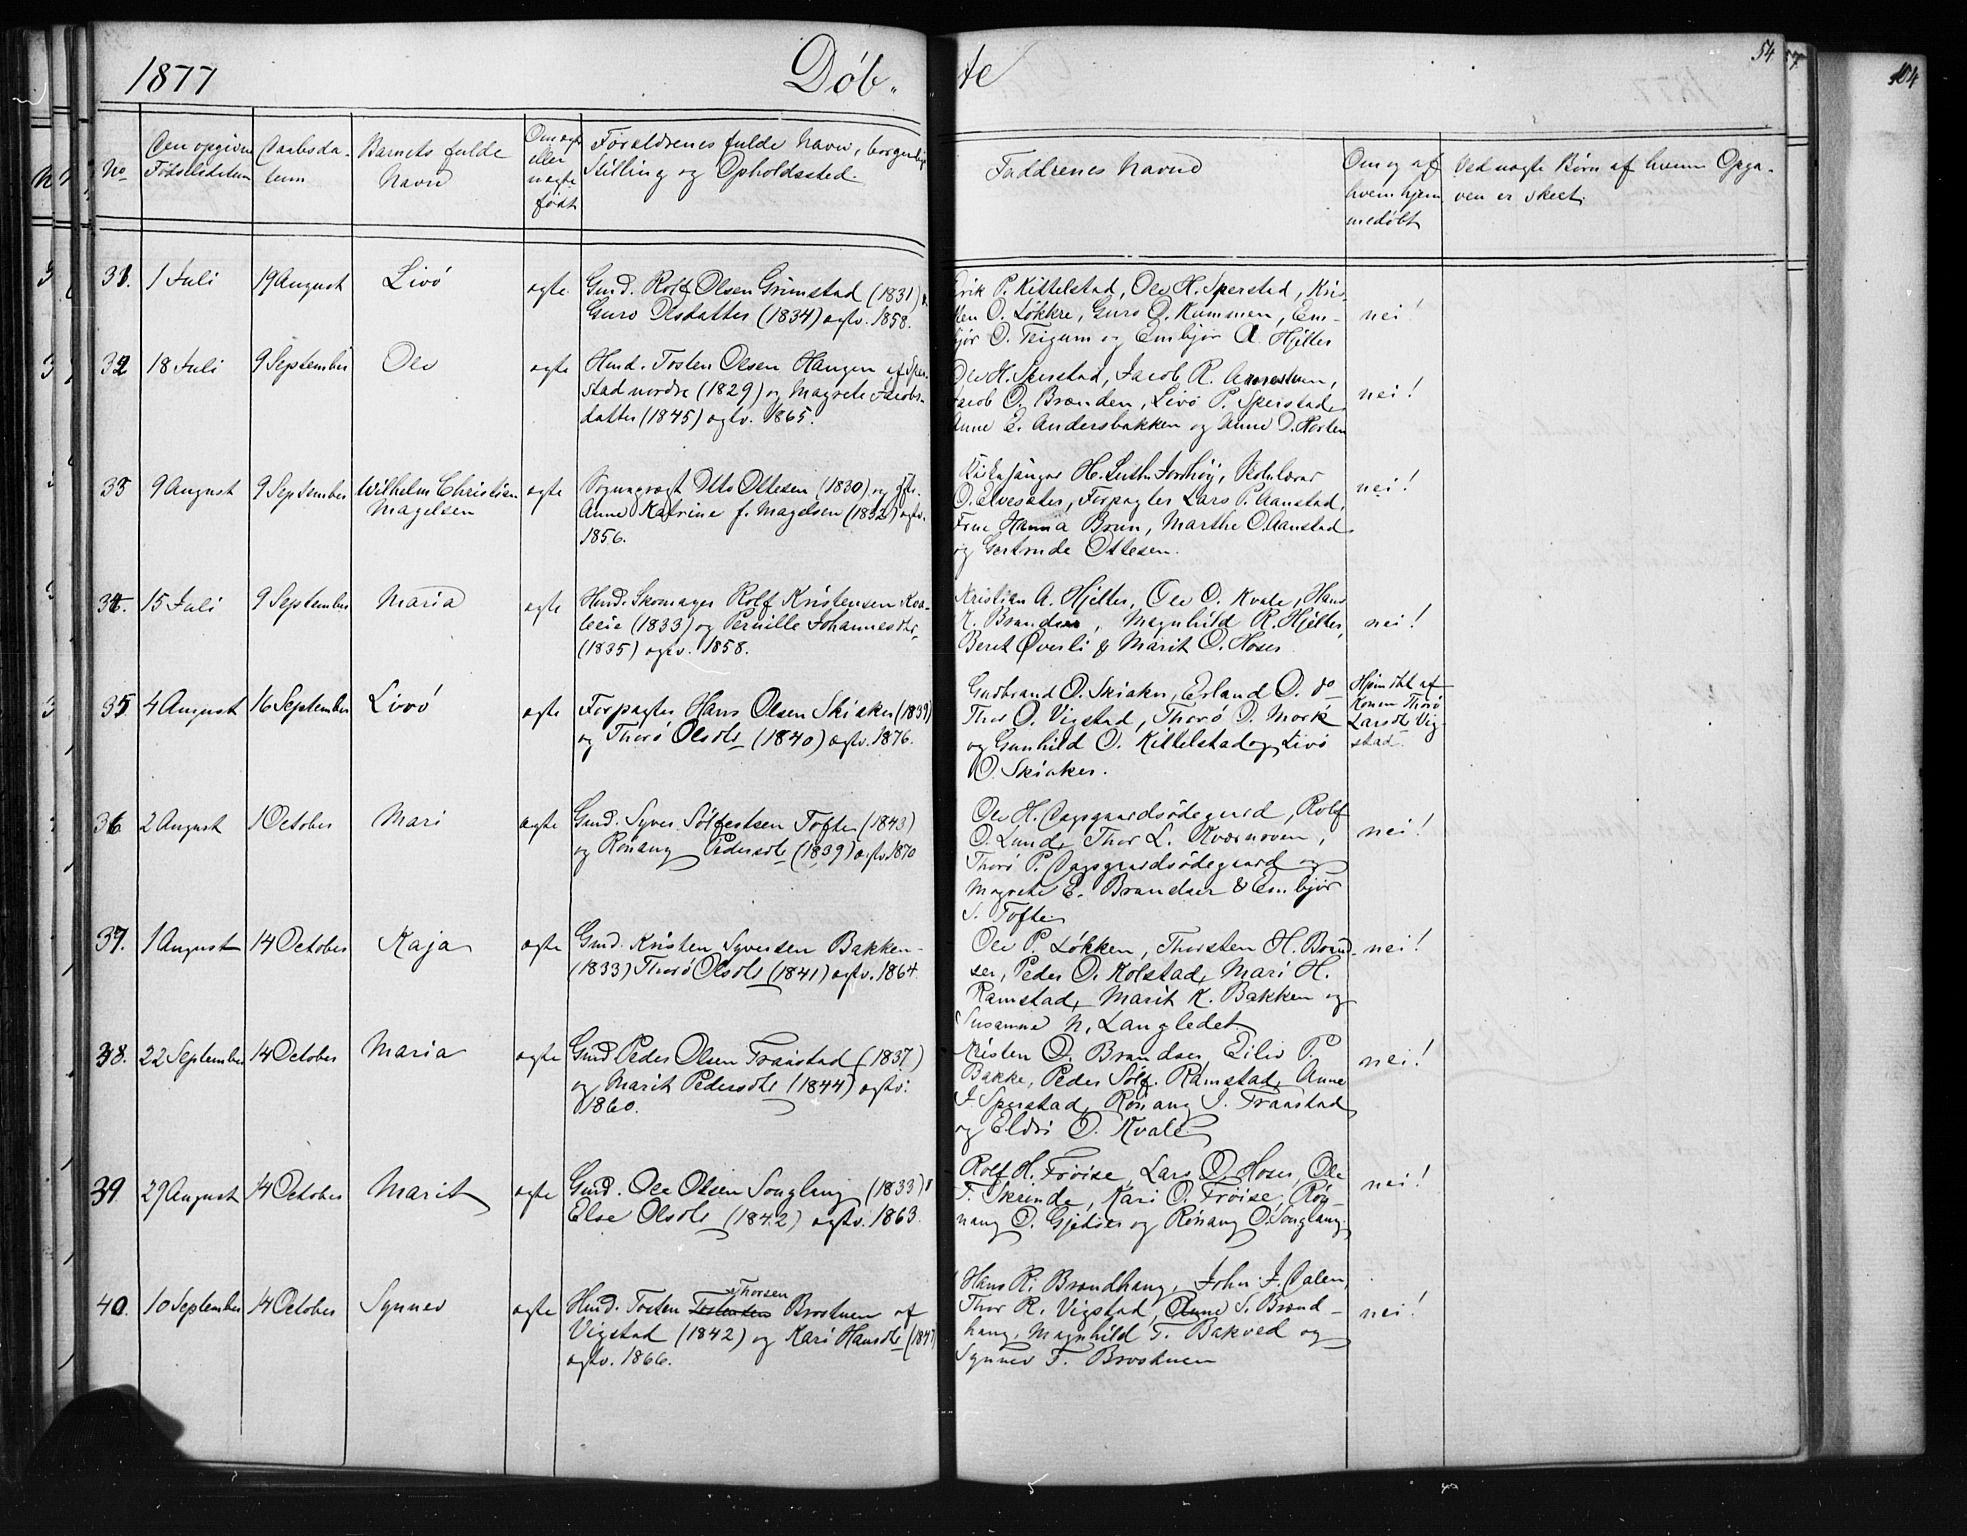 1877 Døb- te 54
No
Den opgivne Fødselsdatum
Daabsda-
tum
Barnets fulde
Navn
Om ægte
eller
uægte
født
Forældrenes fulde Navn, borgerlig
Stilling og Opholdssted.
Faddrenes Navne
Om og af
hvem hjem
medøbt
Ved uægte Børn af hvem Opga-
ven er skeet.
31. 1 Juli 19 August Livó ægte.
Gmd. Rolf Olsen Grimstad (1831) o.
Guro Olsdatter (1834) ægtv. 1858.
Erik P. Kittelstad, Ole H. Sperstad, Kris-
ten O. Løkkre, Guro O. Kummen, Em-
bjør O. Teigum og Embjør A. Hjelter
nei!
32 18 Juli 9 September Ole ægte
Hmd. Tosten Olsen Haugen af Sper-
stad nordre (1829) og Magrete Jacobs-
datter (1845) ægtv. 1865.
Ole H. Sperstad, Jacob R.
Jacob O. Brænden, Livó P. Sperstad,
Anne E. Andersbakken og Anne O. Horten
nei!
33 9 August 9 September Wilhelm Christian
Magelsen
ægte
Ottesen (1830) og
Anne Katrine f. Magelsen (1832) ægtv.
1856.
Kirkesanger H. Skolelærer
O. Elvesæter, Forpagter Lars P. Aanstad,
Frue Hanna Brun, Marthe O. Aanstad
og Gertrude Ottesen.
nei!
34. 15 Juli 9 September Maria ægte
Hmd. Skomager Rolf Kristensen Kva-
leeie (1833) og Pernille Johannesdtr.
(1835) ægtv. 1858.
Kristian A. Hjelter, Ole O. Kvale, Hans
K. Brandser, Magnhild R. Hjelter,
Beret Øverli & Marit O. Hoser
nei!
35 4 August 16 September Livó ægte
Forpagter Hans Olsen Skiaker (1839)
og Thoró Olsdtr (1840) ægtv. 1876.
Gudbrand O. Skiaker, Erland O. do
Thor O. Vigstad, Thoró O. Mork
og Gunhild O. Kittelstad og Livó
O. Skiaker.
Hjemdbt af
Konen Thoró
Larsdtr Vig-
stad.
36 2 August 1 October Mari ægte
Gmd. Syver Sólfestsen Tofte (1843)
og Rónaug Pedersdtr (1839) ægtv. 1870
Ole H. Dagsgaardsódegaard, Rolf
O. Lund, Thor L. Kværnoven,
Thoró P. Dagsgaardsódegaard og
Magrete E. Brandser & Embjør
S. Tofte
nei!
37. 1 August 14 October Kaja ægte
Gmd. Kristen Syversen Bakken-
(1833) Thoró Olsdtr (1841) ægtv. 1864.
Ole P. Løkken, Thorsten H. Brand-
ser, Peder O. Kolstad, Mari H.
Ramstad, Marit K. Bakken og
Susanne N. Langledet
nei!
38. 22 September 14 October Maria ægte
Gmd Peder Olsen Traastad (1837)
og Marit Pedersdtr (1844) ægtv:
1860.
Kristen O. Brandser, Eiliv P.
Bakke, Peder Sólf. Ramstad, Anne
J. Sperstad, Rónaug J. Traastad
og Eldri O. Kvale
nei!
39 29 August 14 October Marit ægte
Gmd. Ole Olsen Songlang (1833) &
Else Olsdtr (1842) ægtv. 1863.
Rolf H. Fróise, Lars O. Hoser, Ole
T. Skrinde, Kari O. Fróise, Rón-
naug O. Gjetser og Rónaug O. Songlang.
nei!
40. 10 September 14 October Synnev ægte
Thorsen
Hmd. Tosten Tostensen Brostuen af
Vigstad (1842) og Kari Hansdtr (184
ægtv. 1866.
Hans R. Brandhaug, John J. Dalen,
Thor R. Vigstad, Anne S. Brand-
haug, Magnhild T. Bakved og
Synnev T. Brostuen
nei!